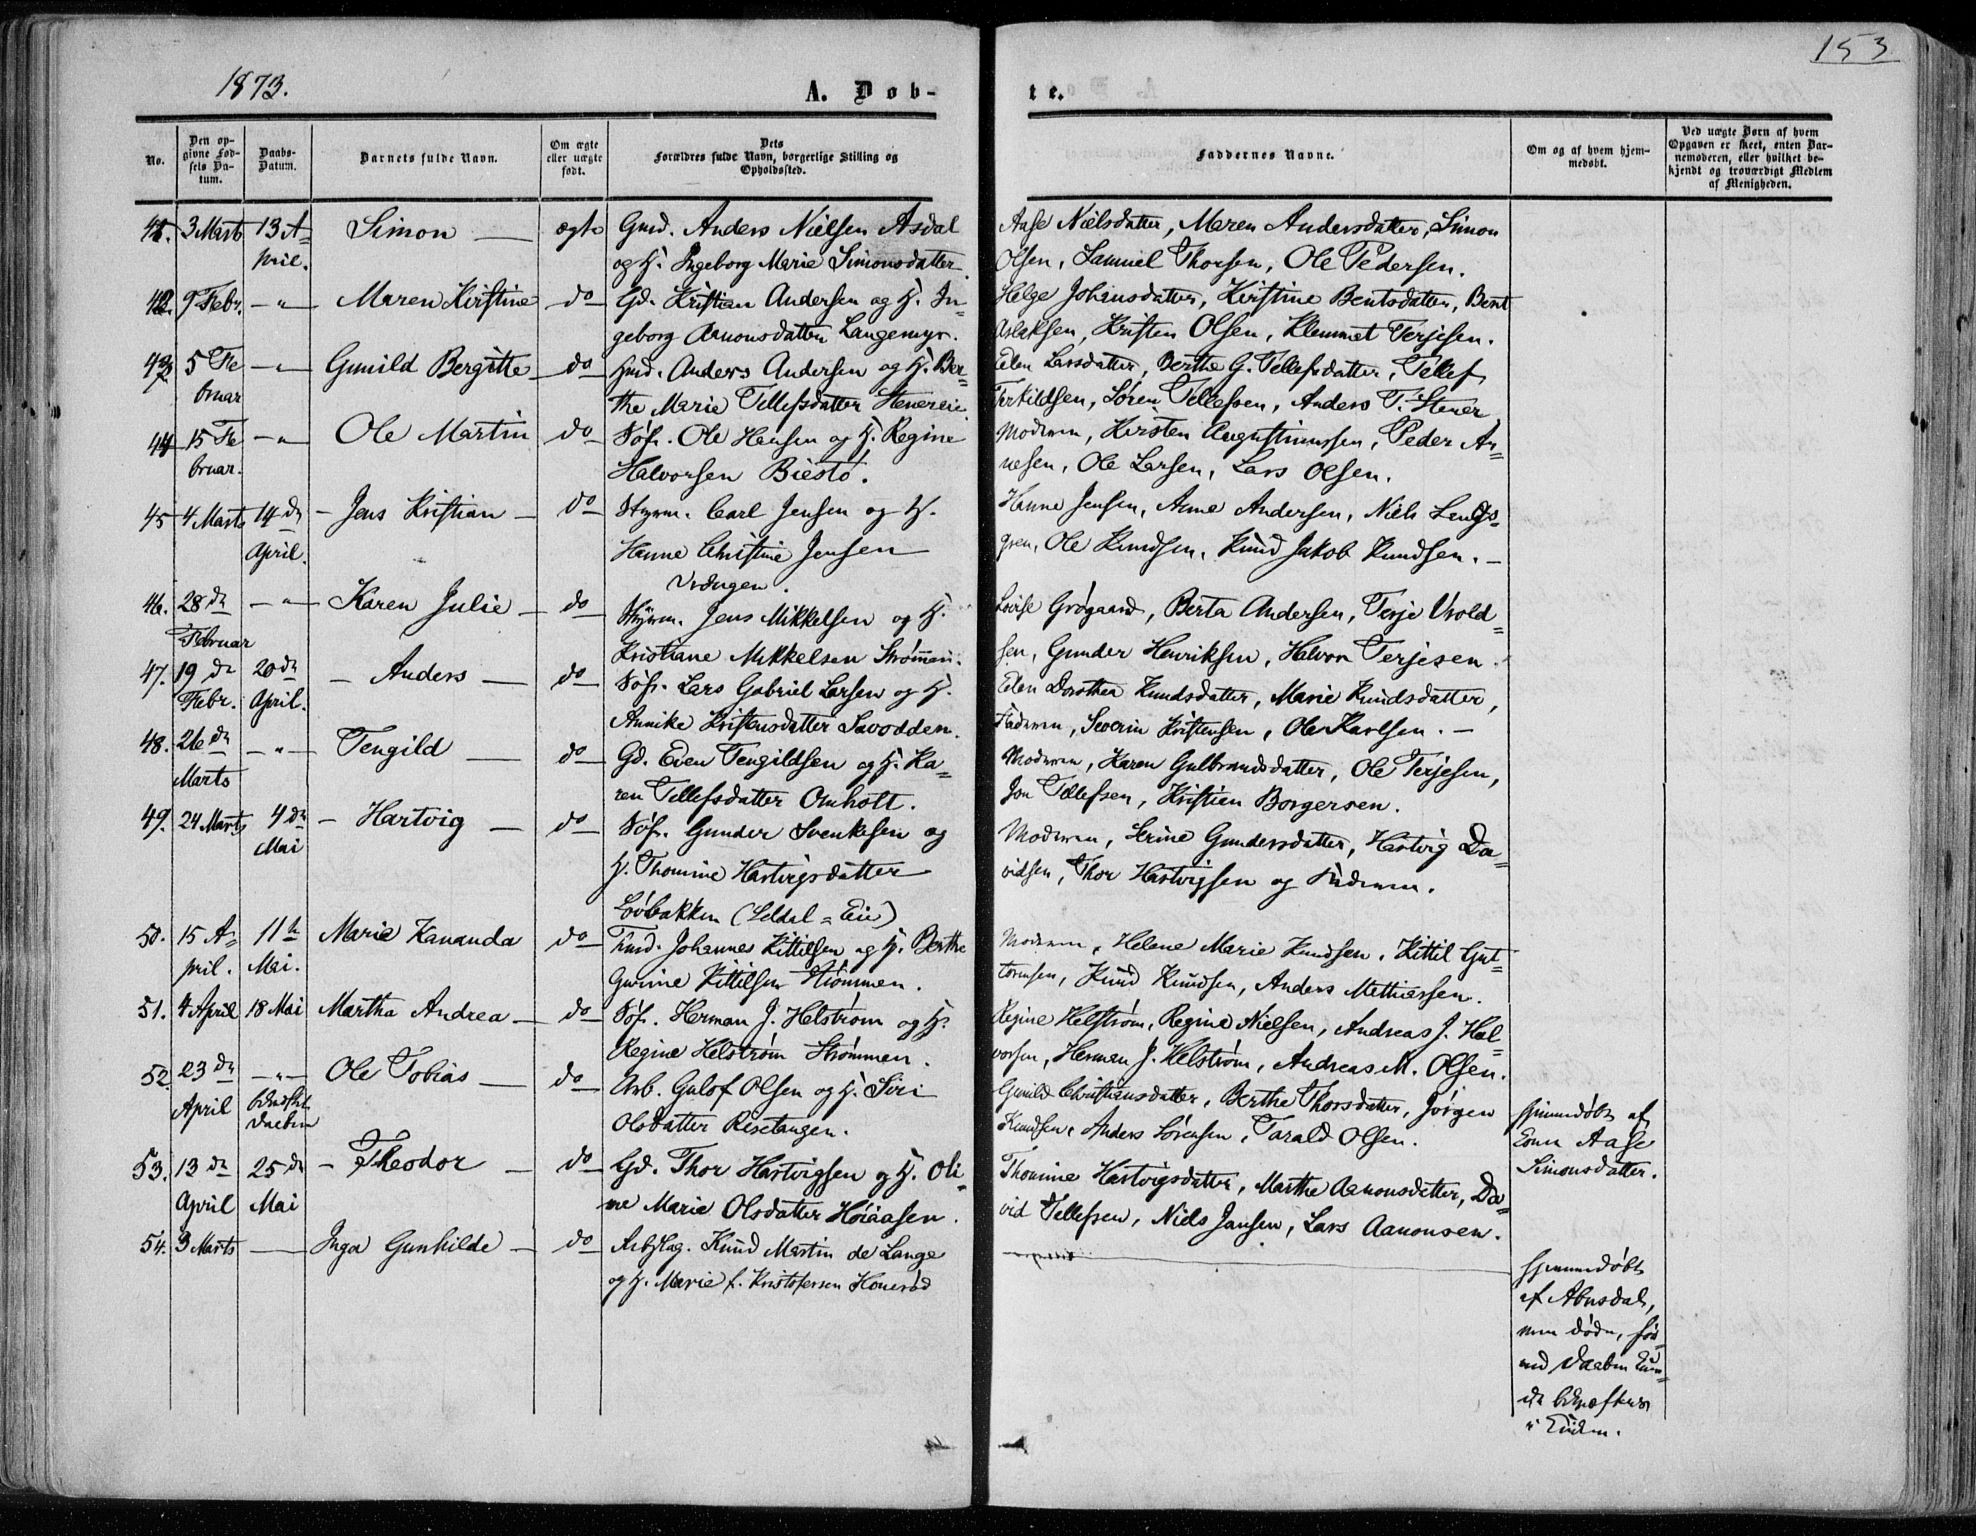 1873.
A. Døb-
te.
153
No.
Den op-
givne Fød-
sels Da-
tum.
Daabs-
Datum.
Barnets fulde Navn.
Om ægte
eller uægte
født.
Dets
Forældres fulde Navn, borgerlige Stilling og
Opholdssted.
Faddernes Navne.
Om og af hvem hjem-
medøbt.
Ved uægte Børn af hvem
Opgaven er skeet, enten Bar-
nemoderen, eller hvilket be-
kjendt og troværdigt Medlem
af Menigheden.
41. 3 Marts 13 A=
pril. Simon ægte Gmd. Anders Nielsen Asdal
og H. Ingeborg Marie Simonsdatter.
Aase Nielsdatter, Maren Andersdatter, Simon
Olsen, Samuel Thorsen, Ole Pedersen.
42. 9 Febr. -"- Maren Kirstine do Gd. Kristian Andersen og H. In=
geborg Aanonsdatter Langemyr.
Helge Johansdatter, Kirstine Bentsdatter, Bent
Aslaksen, Kristen Olsen, Klemmet Terjesen.
43. 5 Fe
bruar -"- Gunild Bergitte do Hmd. Anders Andersen og H. Ber=
the Marie Tellefsdatter Stenereie
Elen Larsdatter, Berthe G. Tellefsdatter, Tellef
Terkildsen, Søren Tellefsen, Anders T. Stener
44 15 Fe
bruar. -"- Ole Martin do Søf. Ole Hansen og H. Regine
Halvorsen Biestø.
Moderen, Kirsten Augustinussen, Peder Ar=
nesen, Ole Larsen, Lars Olsen.
45 4 Marts 14 de
April. - Jens Kristian - do Styrm. Carl Jensen og H.
Hanne Christine Jensen
Vrængen.
Hanne Jensen, Anne Andersen, Niels Lengs=
gren, Ole Knudsen, Knud Jakob Knudsen. -
46. 28 de
Februar -"- Karen Julie - do Styrm. Jens Mikkelsen og H.
Kristiane Mikkelsen Strømmen.
Lovise Grøgaard, Berta Andersen, Terje Vrold=
sen, Gunder Henriksen, Halvor Terjesen.
47. 19 de
Febr. 20 de
April. - Anders - do Søf. Lars Gabriel Larsen og H.
Annike Kristensdatter Savodden.
Elen Dorthea Knudsdatter, Marie Knudsdatter,
Faderen, Severin Kristensen, Ole Karlsen. -
48. 26 de
Marts -"- Tengild - do Gd. Even Tengildsen og H. Ka=
ren Tellefsdatter Omholt.
Moderen, Karen Gulbrandsdatter, Ole Terjesen,
Jon Tellefsen, Kristien Borgersen.
49. 24 Marts 4 de
Mai - Hartvig - do Søf. Gunder Svenkesen og
H. Thomine Hartvigsdatter
Løvbakken (Seldal=Eie)
Moderen, Serine Gundersdatter, Hartvig Da=
vidsen, Thor Hartvigsen og Faderen.
50. 15 A=
pril. 11te
Mai. Marie Kananda do Johannes Kittilsen og H. Berthe
Gurine Kittilsen Strømmen.
Moderen, Helene Marie Knudsen, Kittil Gut=
tormsen, Knud Knudsen, Anders Mathiassen.
51. 4 April 18 Mai Martha Andrea - do Søf. Herman J. Helstrøm og H.
Regine Helstrøm Strømmen.
Regine Helstrøm, Regine Nielsen, Andreas J. Hal=
vorsen, Herman J. Helstrøm, Andreas M. Olsen.
52. 23 de
April -"-
Daaben Ole Tobias - do Arb. Gulof Olsen og H. Siri
Olsdatter Risetangen.
Gunild Christiansdatter, Berthe Thorsdatter, Jørgen
Knudsen, Anders Sørensen, Tarald Olsen.
Hjemmedøbt af
Aase
Simonsdatter.
53. 13 de
April 25 de
Mai - Theodor - do Gd. Thor Hartvigsen og H. Oli=
ne Marie Olsdatter Høiaasen.
Thomine Hartvigsdatter, Marthe Aanonsdatter, Da=
vid Tellefsen, Niels Jansen, Lars Aanonsen.
54. 3 Marts - Inga Gunhilde - do Knud Martin de Lange
og H. Marie f. Kristofersen Honerød
Hjemmedøbt
af
men døde, før=
end Daaben kun=
de bekræftes
i Kirken.